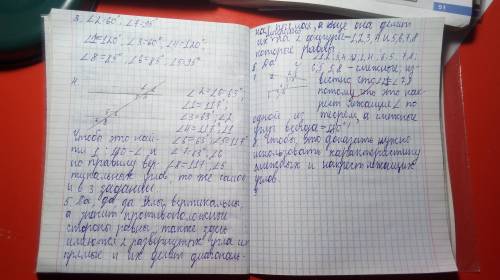 3. ∠2=60° ∠7=95°
∠1=120°, ∠3=60°, ∠4=120°
∠8=85° ∠6=85° ∠5=95°
4
∠2=∠6=63°;
∠1=117°;
∠3=63°; ∠2
∠4=117°; ∠1
∠6=63°
∠8=117°; ∠5
Чтобы это най-
ти 1: 180-∠ и
по правилу вер-
тикальных углов то же самое
и в 3 задании.
5. Да, да да углы вертикальны,
а значит противоположные
стороны равны, также здесь
имеются 2 развернутых угла их
прямые и их делит диагональ-
ная прямая, а еще она делит
их на 2 другие-1,2,3,4 и 5,6,7,8
которые равны.
6. Да!
смежные; из-
вестно, что ∠2=∠7,
потому что это нак-
рест лежащие ∠ по
одной из теорем, а смежные
углы всегда=180°!
7. Чтоб это доказать нужно
использовать характеристику
смежных и накрест лежащих
углов